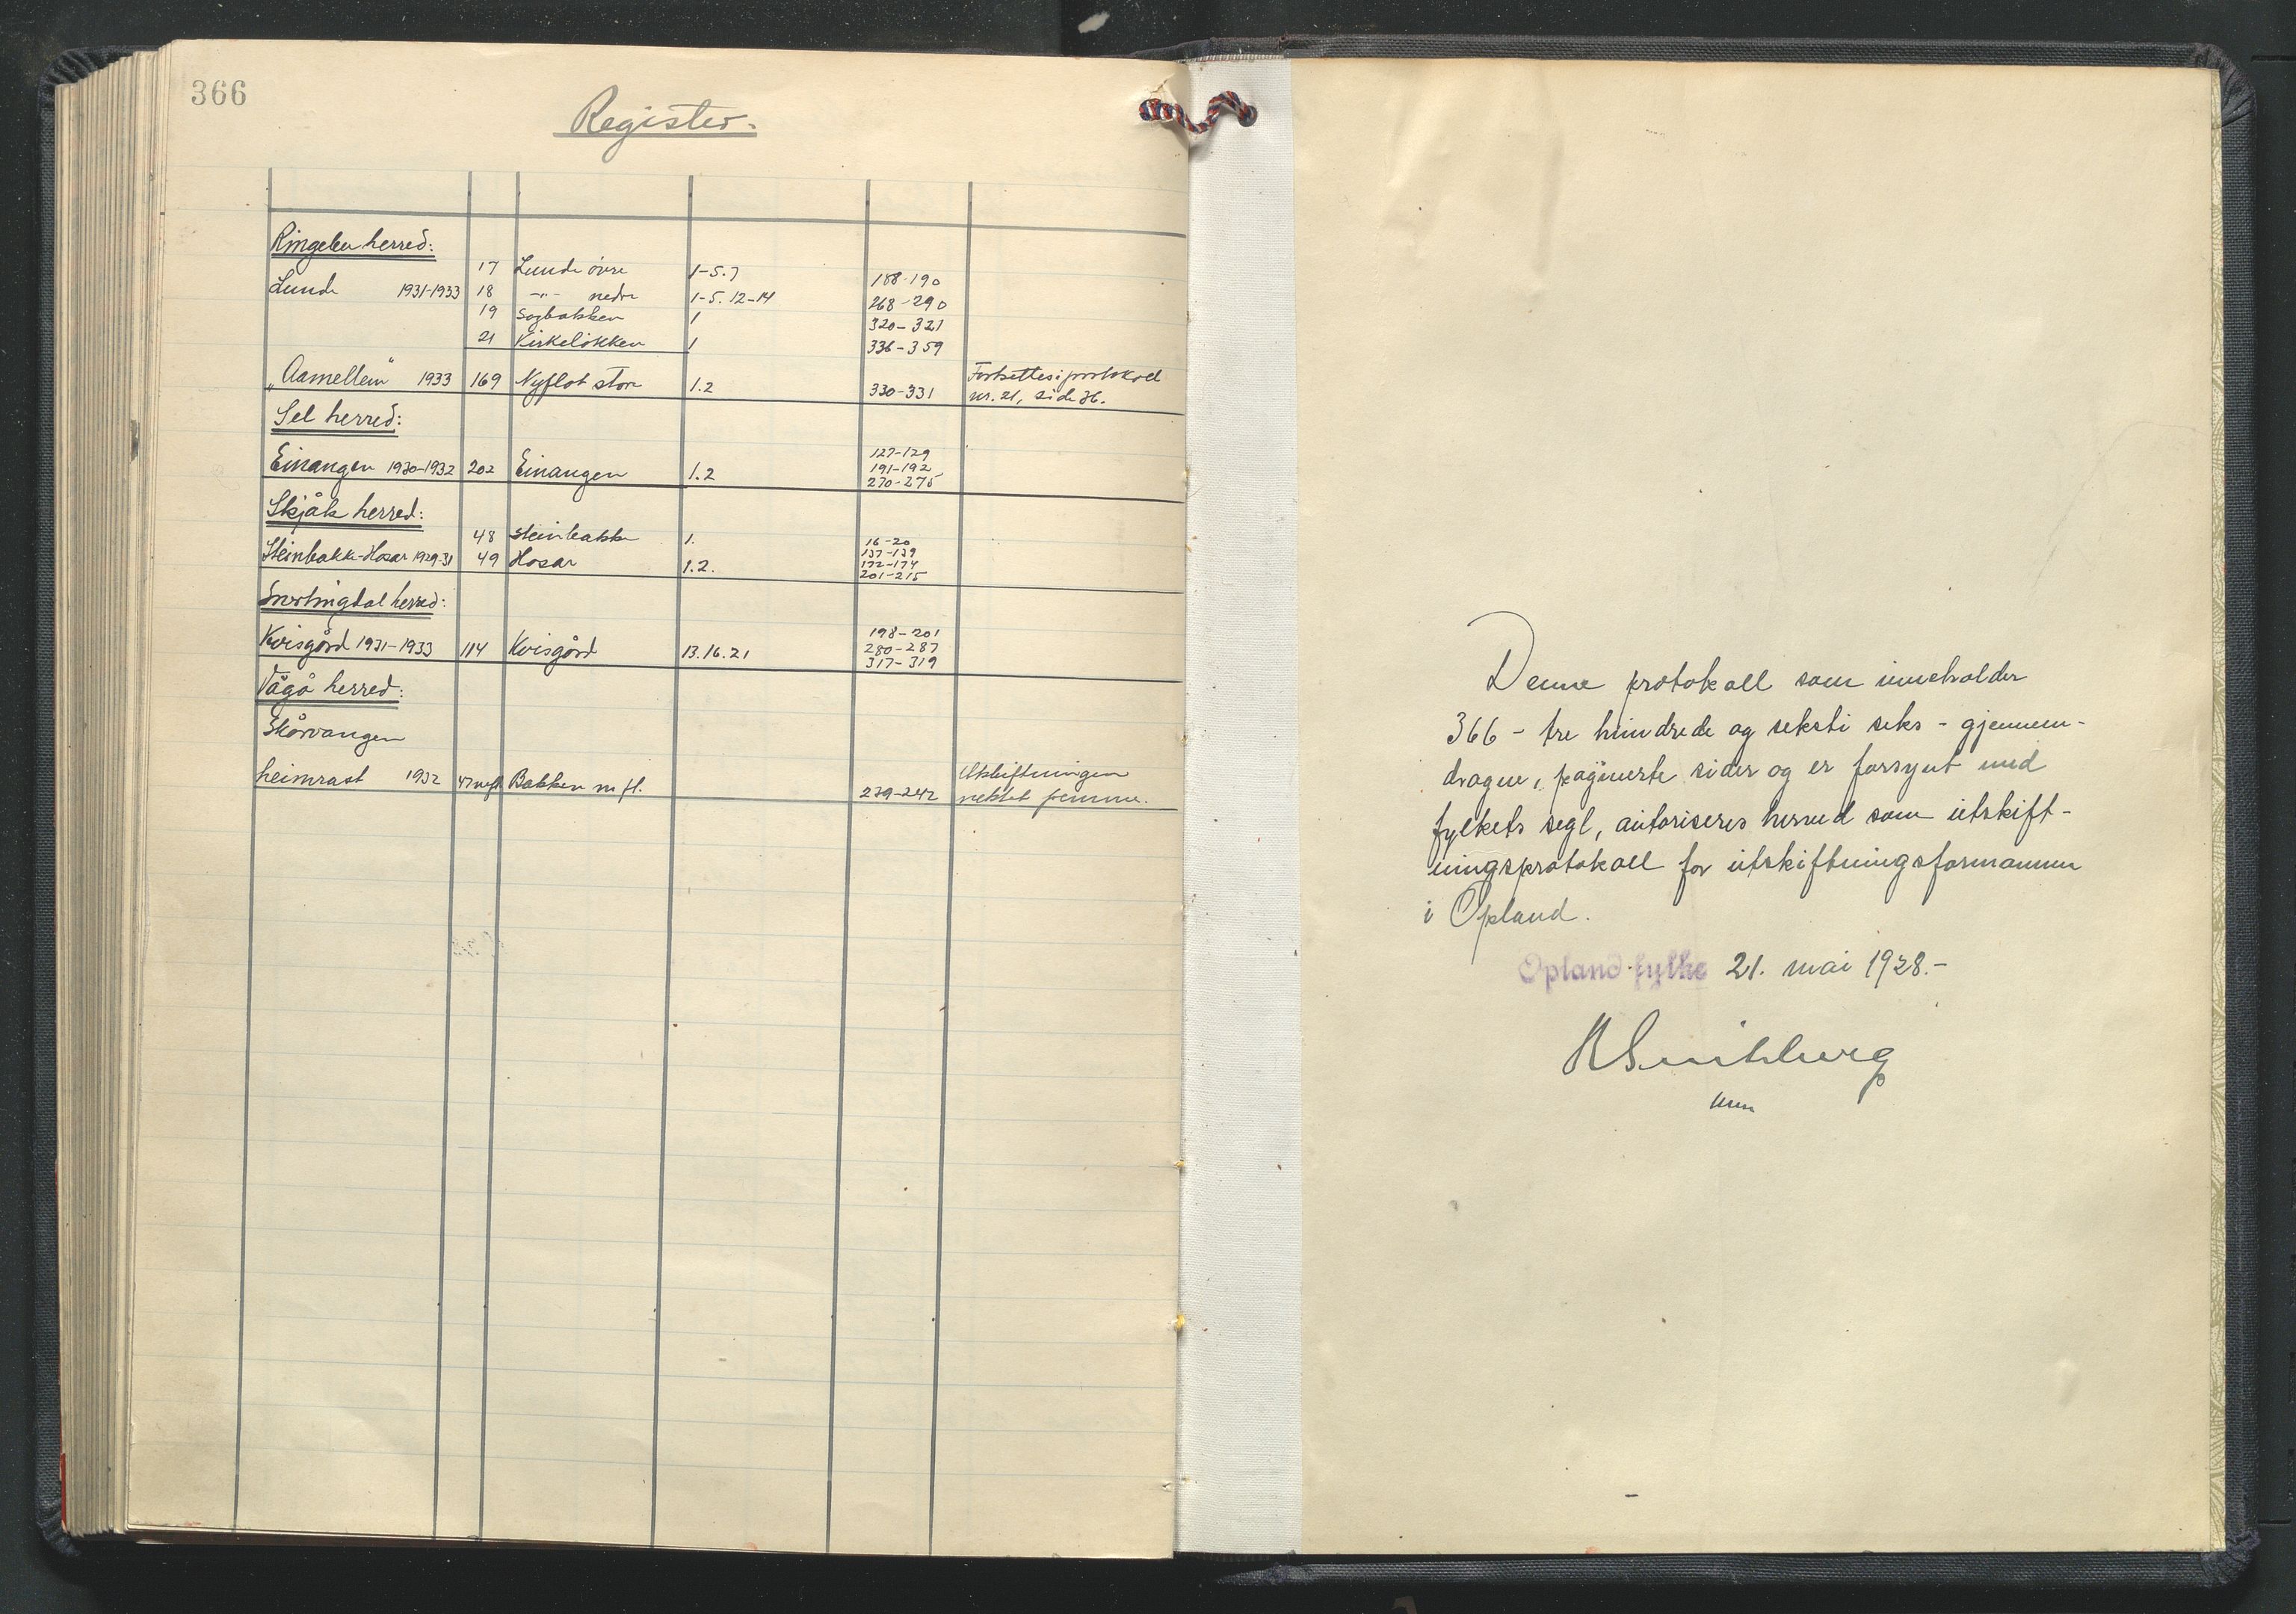 366
Register.
Ringebu herred:
17 Lunde övre 1-5.7 188-190
Lunde 1931-1933 18 -"- nedre 1-5. 12-14 268-290
19 Sogbakken 1 320-321
21 Kirkelökken 1 336-359
"Aamellem" 1933 169 Nyflot store 1.2 330-331 Fortsettes i protokoll
nr. 21, side 36.
Sel herred:
127-129
Einangen 1930-1932 202 Einangen 1.2 191-192
270-275
Skjåk herred:
48 Steinbakke 1. 16-20
137-139
Steinbakke-Hosar 1929-31 49 Hosar 1.2. 172-174
201-215
Snertingdal herred:
198-201
Kvisgård 1931-1933 114 Kvisgård 13.16.21 280-287
317-319
Vågå herred:
Skårvangen
heimrast 1932 47 m.fl. Bakken m fl. 239-242 Utskiftningen
nektet fremme.
Denne protokoll som inneholder
366 - tre hundrede og seksti seks - gjennem-
dragne, paginerte sider og er forsynt med
fylkets segl, autoriseres herved som utskift-
ningsprotokoll for utskiftningsformannen
i Opland.
Opland fylke 21. mai 1928.-